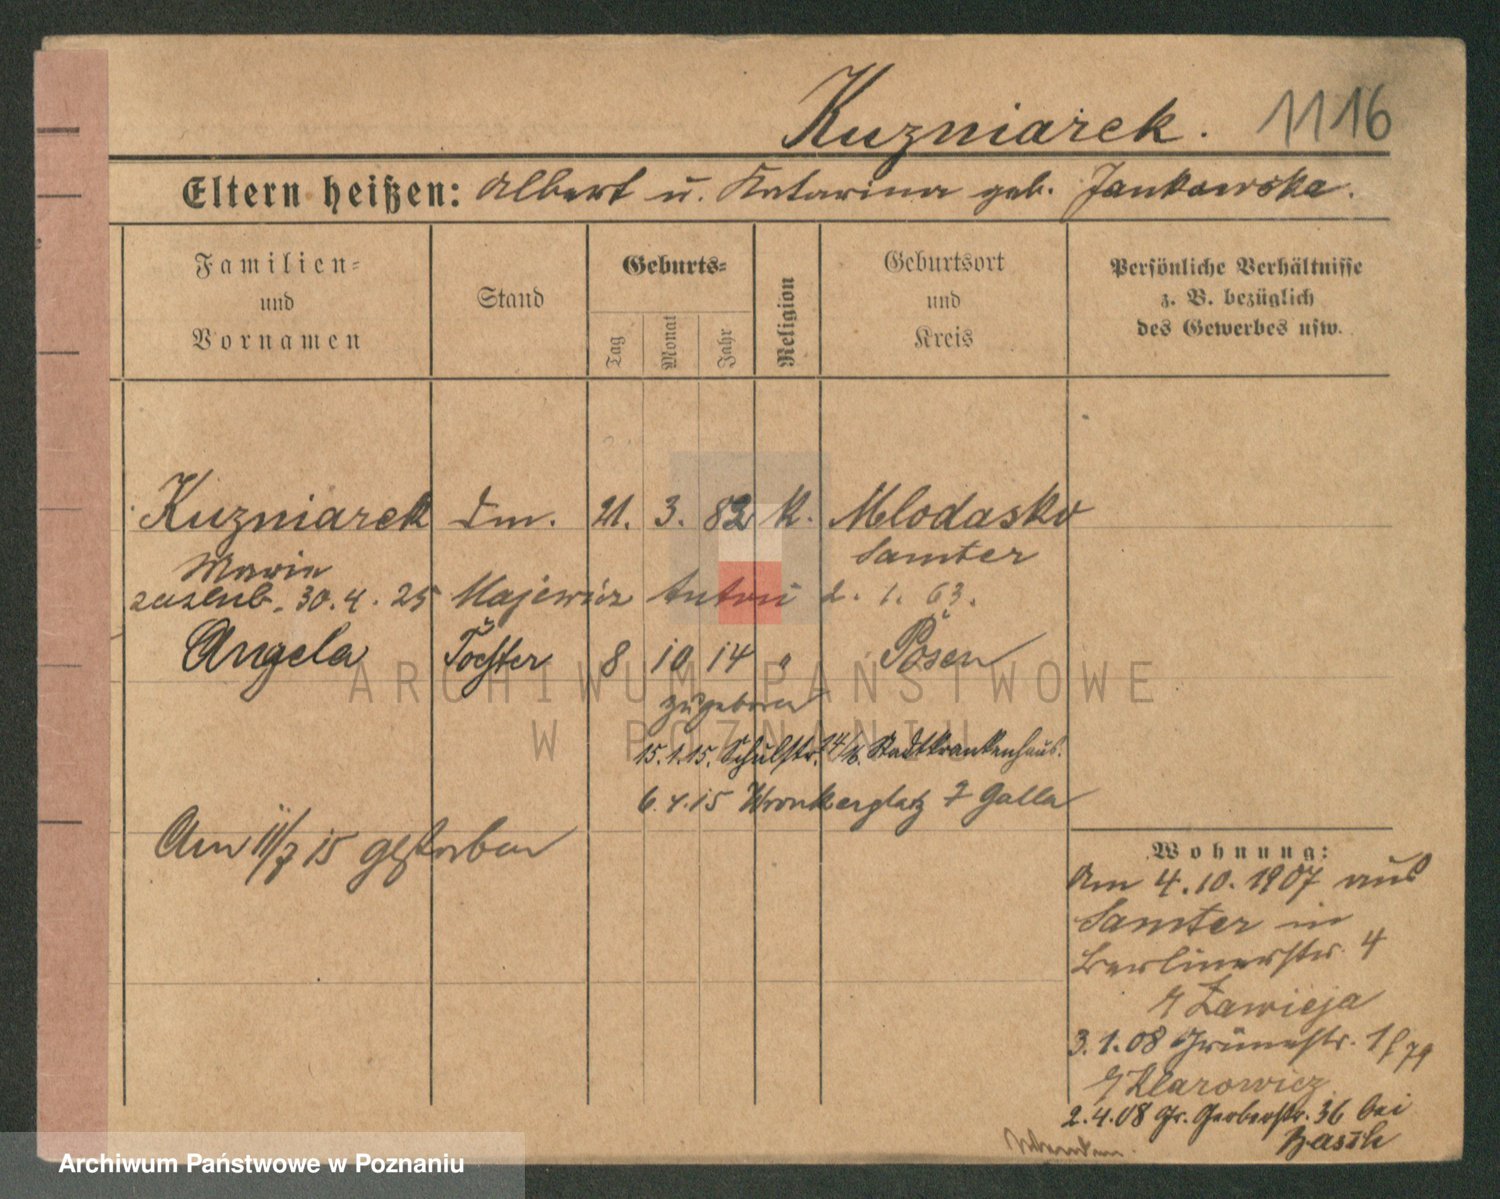 Kuzniarek. 1116
Eltern heißen: Albert u. Katarina geb. Jankowska.
Familien=
und
Vornamen
Stand
Geburts=
Tag
Monat
Jahr
Religion
Geburtsort
und
Kreis
Persönliche Verhältnisse
z. B. bezüglich
des Gewerbes usw.
Kuzniarek Dm. 21. 3. 82 K. Mlodasko
Maria Samter
zaslub. 30.4.25 Majewicz Antoni 2. 1. 63.
Angela Tochter 8 10 14 " Posen
zugeboren
15.1.15. Schulstr. Stadtkrankenhaus.
6.4.15 Wronkerplatz 7 Galla
Am 11/7 15 gestorben
Wohnung:
Am 4.10.1907 aus
Samter in
Berlinerstr. 4
Zawieja
3.1.08 Grünestr. 1
Klarowicz
2.4.08 Gr. Gerberstr. 36 bei
ARCHIWUM PAŃSTWOWE
W POZNANIU
Archiwum Państwowe w Poznaniu